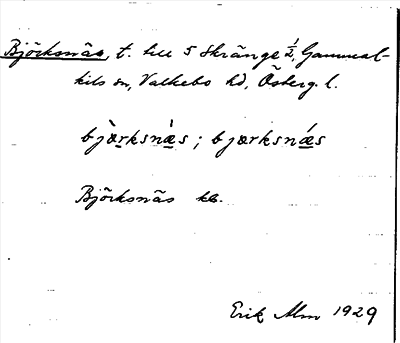 Björksnäs, t. till 5 Skränge ½, Gammal-
kils sn, Valkebo hd, Österg. l.
bjæ̀rksnæ̀s; bjærksnǽs
Björksnäs kb.
Erik Alm 1929